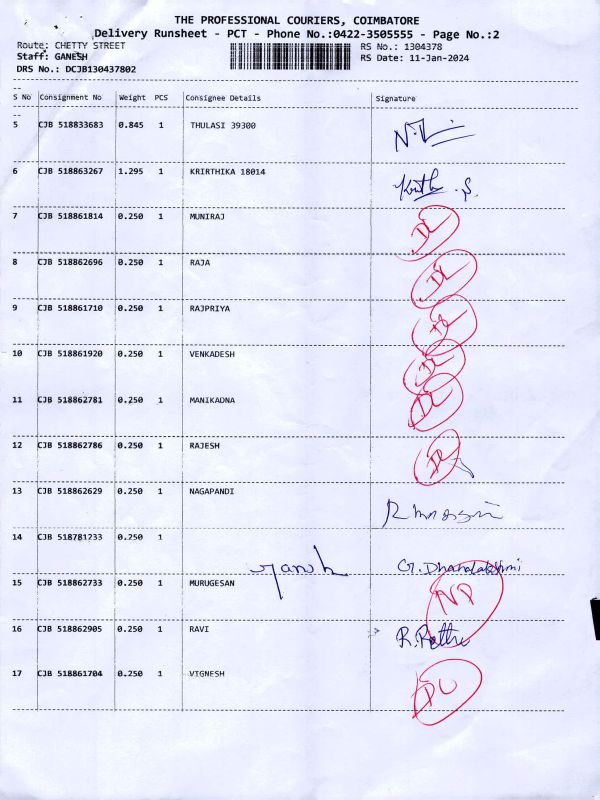 THE PROFESSIONAL COURIERS, COIMBATORE
Delivery Runsheet - PCT - Phone No.:0422-3505555 - Page No.:2
Route: CHETTY STREET RS No.: 1304378
Staff: GANESH RS Date: 11-Jan-2024
DRS No.: DCJB130437802
S No Consignment No Weight PCS Consignee Details Signature
5 CJB 518833683 0.845 1 THULASI 39300
6 CJB 518863267 1.295 1 KRIRTHIKA 18014
7 CJB 518861814 0.250 1 MUNIRAJ
8 CJB 518862696 0.250 1 RAJA
9 CJB 518861710 0.250 1 RAJPRIYA
10 CJB 518861920 0.250 1 VENKADESH
11 CJB 518862781 0.250 1 MANIKADNA
12 CJB 518862786 0.250 1 RAJESH
13 CJB 518862629 0.250 1 NAGAPANDI
14 CJB 518781233 0.250 1 G. Dhanalakshmi
15 CJB 518862733 0.250 1 MURUGESAN NP
16 CJB 518862905 0.250 1 RAVI
17 CJB 518861704 0.250 1 VIGNESH